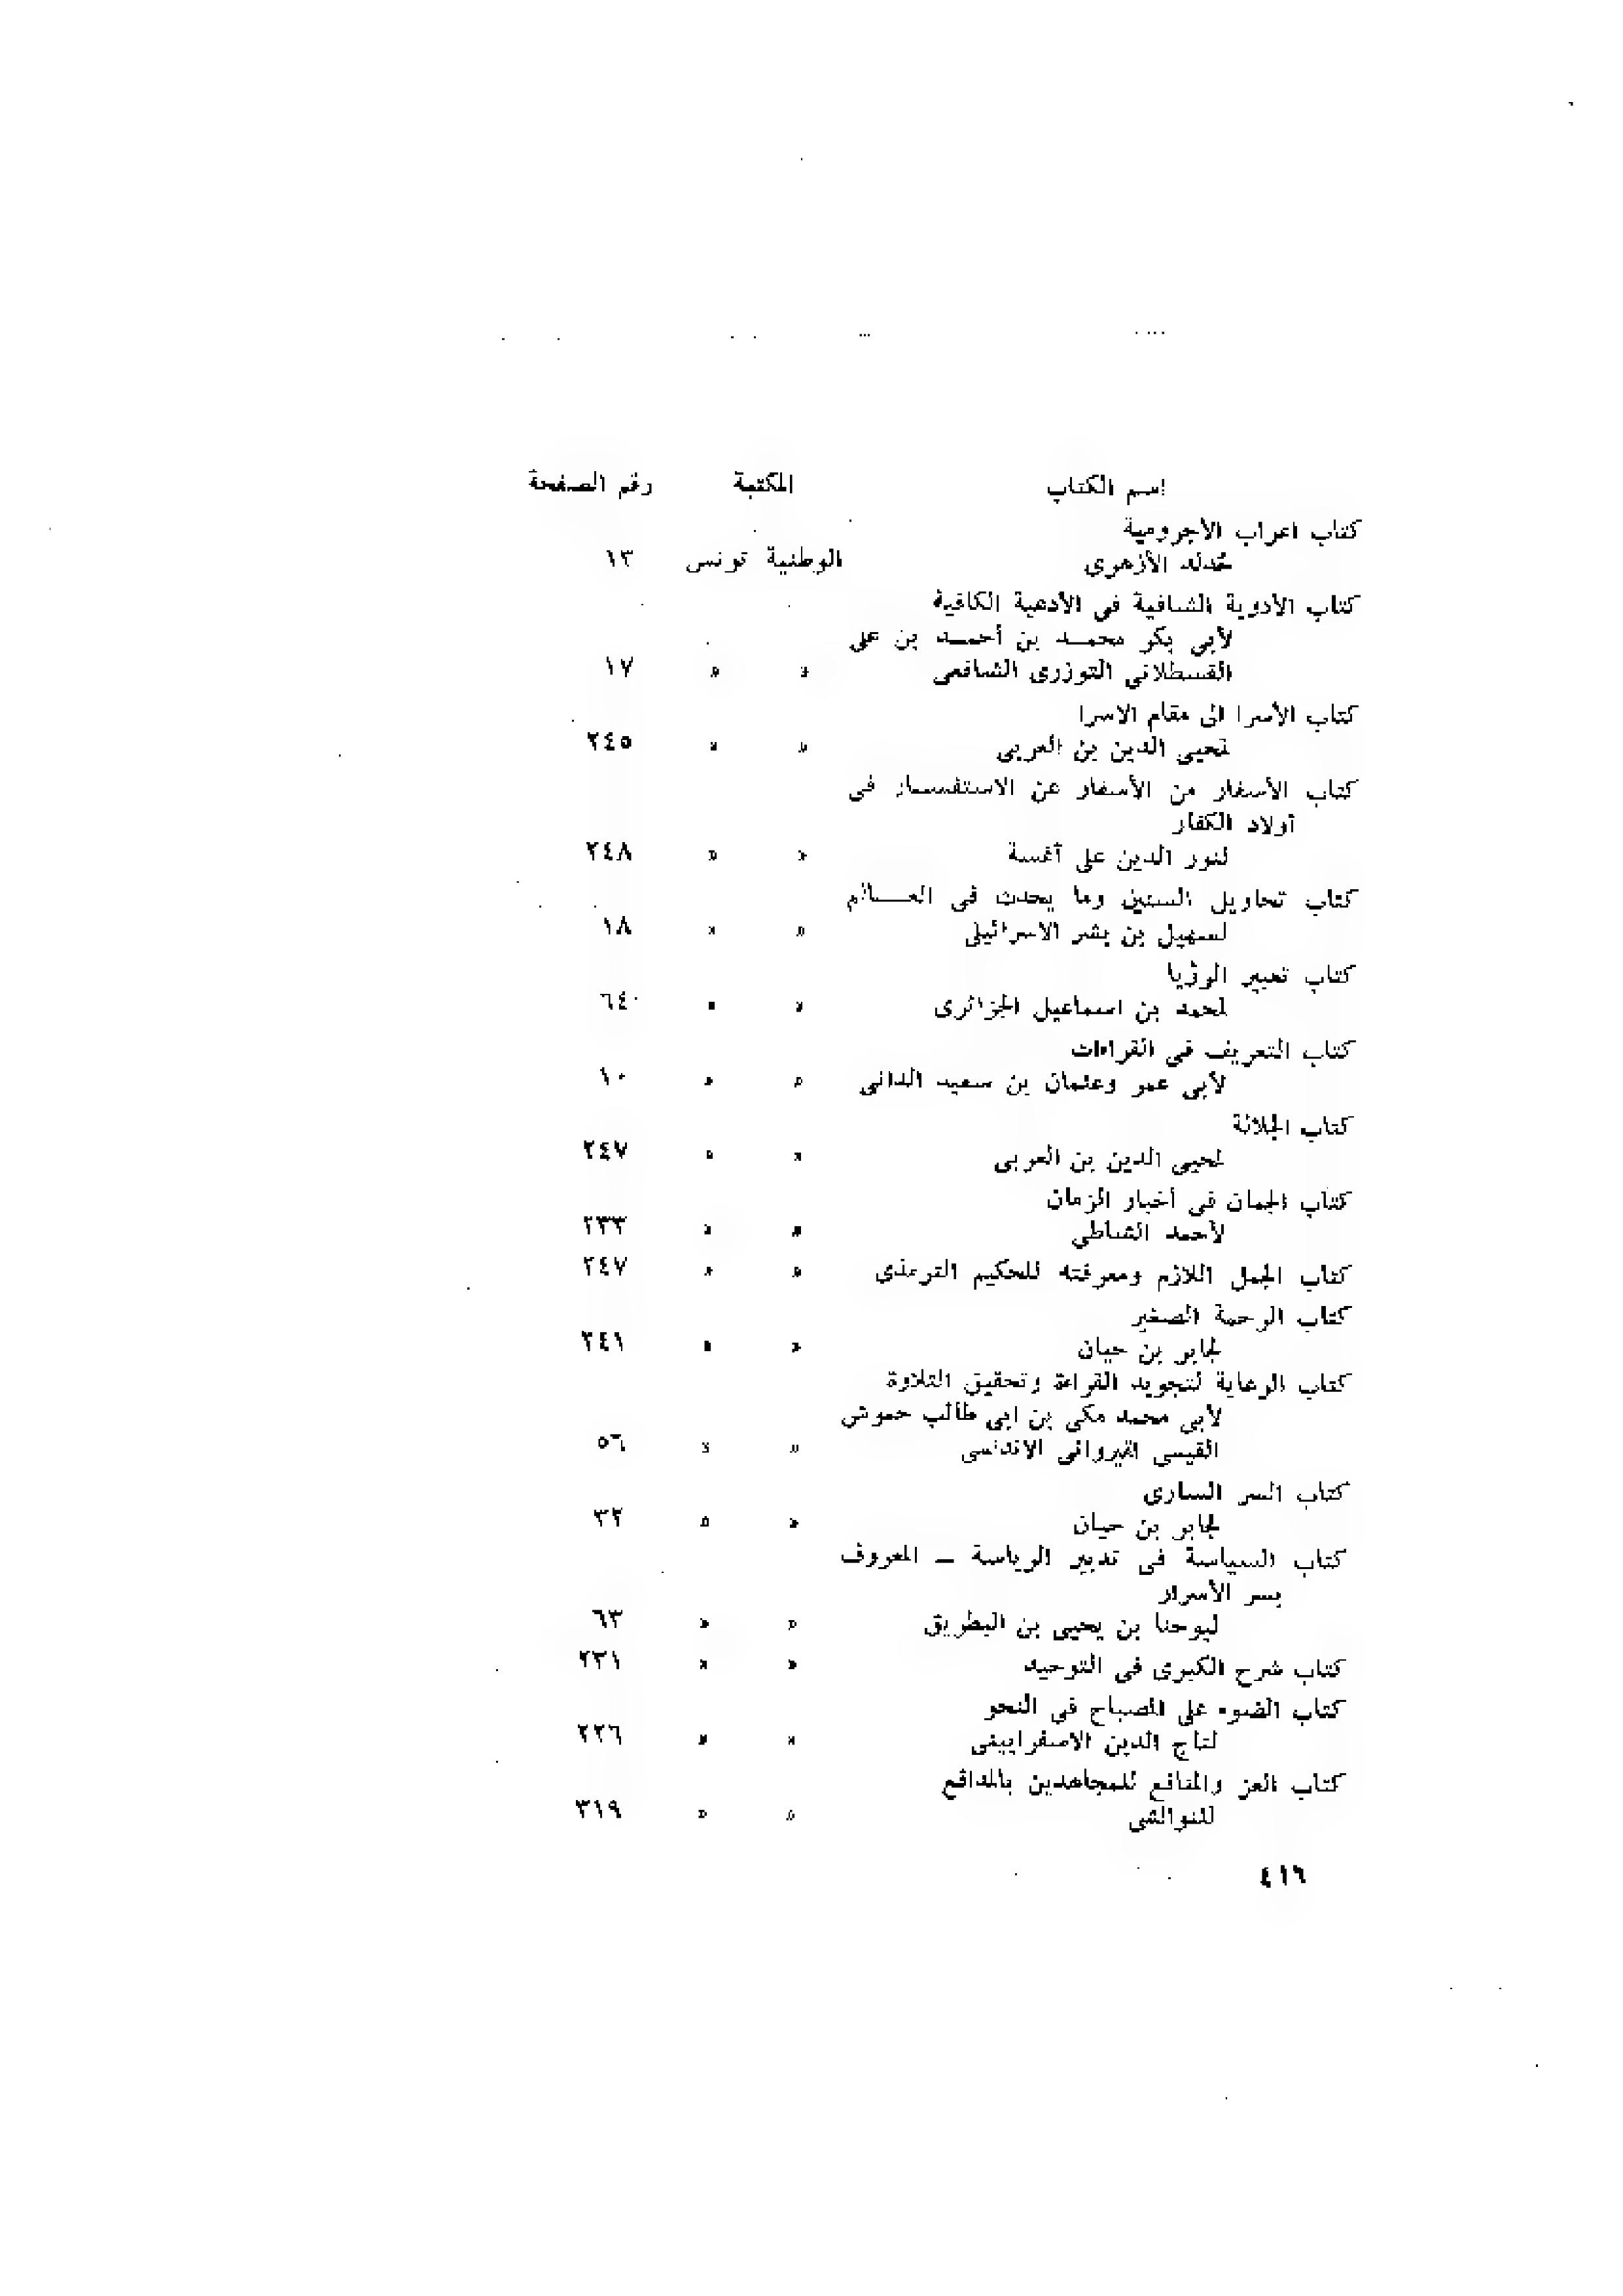 اسم الكتاب المكتبة رقم الصفحة
كتاب اعراب الاجرومية
الأزهرى الوطنية تونس ١٣
كتاب الأدوية الشافية فى الأدعية الكافية
لأبى بكر محمـــد بن أحمـــد بن على
القسطلانى التوزرى الشافعى » » ١٧
كتاب الأسرا الى مقام الاسرا
لمحيى الدين بن العربى » » ٢٤٥
كتاب الأسفار من الأسفار عن الاستفسـار فى
أولاد الكفار
لنور الدين على » » ٢٤٨
كتاب تحاويل السنين وما يحدث فى العـــالم
لسهيل بن بشر الاسرائيلى » » ١٨
كتاب تعبير الرؤيا
لمحمد بن اسماعيل الجزائرى » » ٦٤٠
كتاب التعريف فى القراءات
لأبى عمر وعثمان بن سعيد الدانى » » ١٠
كتاب الجلالة
لمحيى الدين بن العربى » » ٢٤٧
كتاب الجمان فى أخبار الزمان
لأحمد الشاطى » » ٢٣٣
كتاب الجمل اللازم ومعرفته للحكيم الترمذى » » ٢٤٧
كتاب الرحمة الصغير
لجابر بن حيان » » ٢٤١
كتاب الرعاية لتجويد القراءة وتحقيق التلاوة
لأبى محمد مكى بن ابى طالب حموش
القيسى القيروانى الاندلسى » » ٥٦
كتاب السر السارى
لجابر بن حيان » » ٣٢
كتاب السياسة فى تدبير الرياسة ــ المعروف
بسر الأسرار
ليوحنا بن يحيى بن البطريق » » ٦٣
كتاب شرح الكبرى فى التوحيد » » ٢٣١
كتاب الضوء على المصباح فى النحو
لتاج الدين الاسفرايينى » » ٢٢٦
كتاب العز والمنافع للمجاهدين بالمدافع
للنوالشى » » ٣١٩
٤١٦